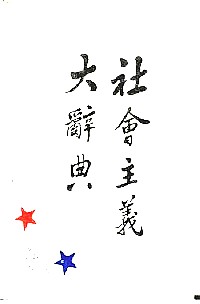 社會主義
大辭典